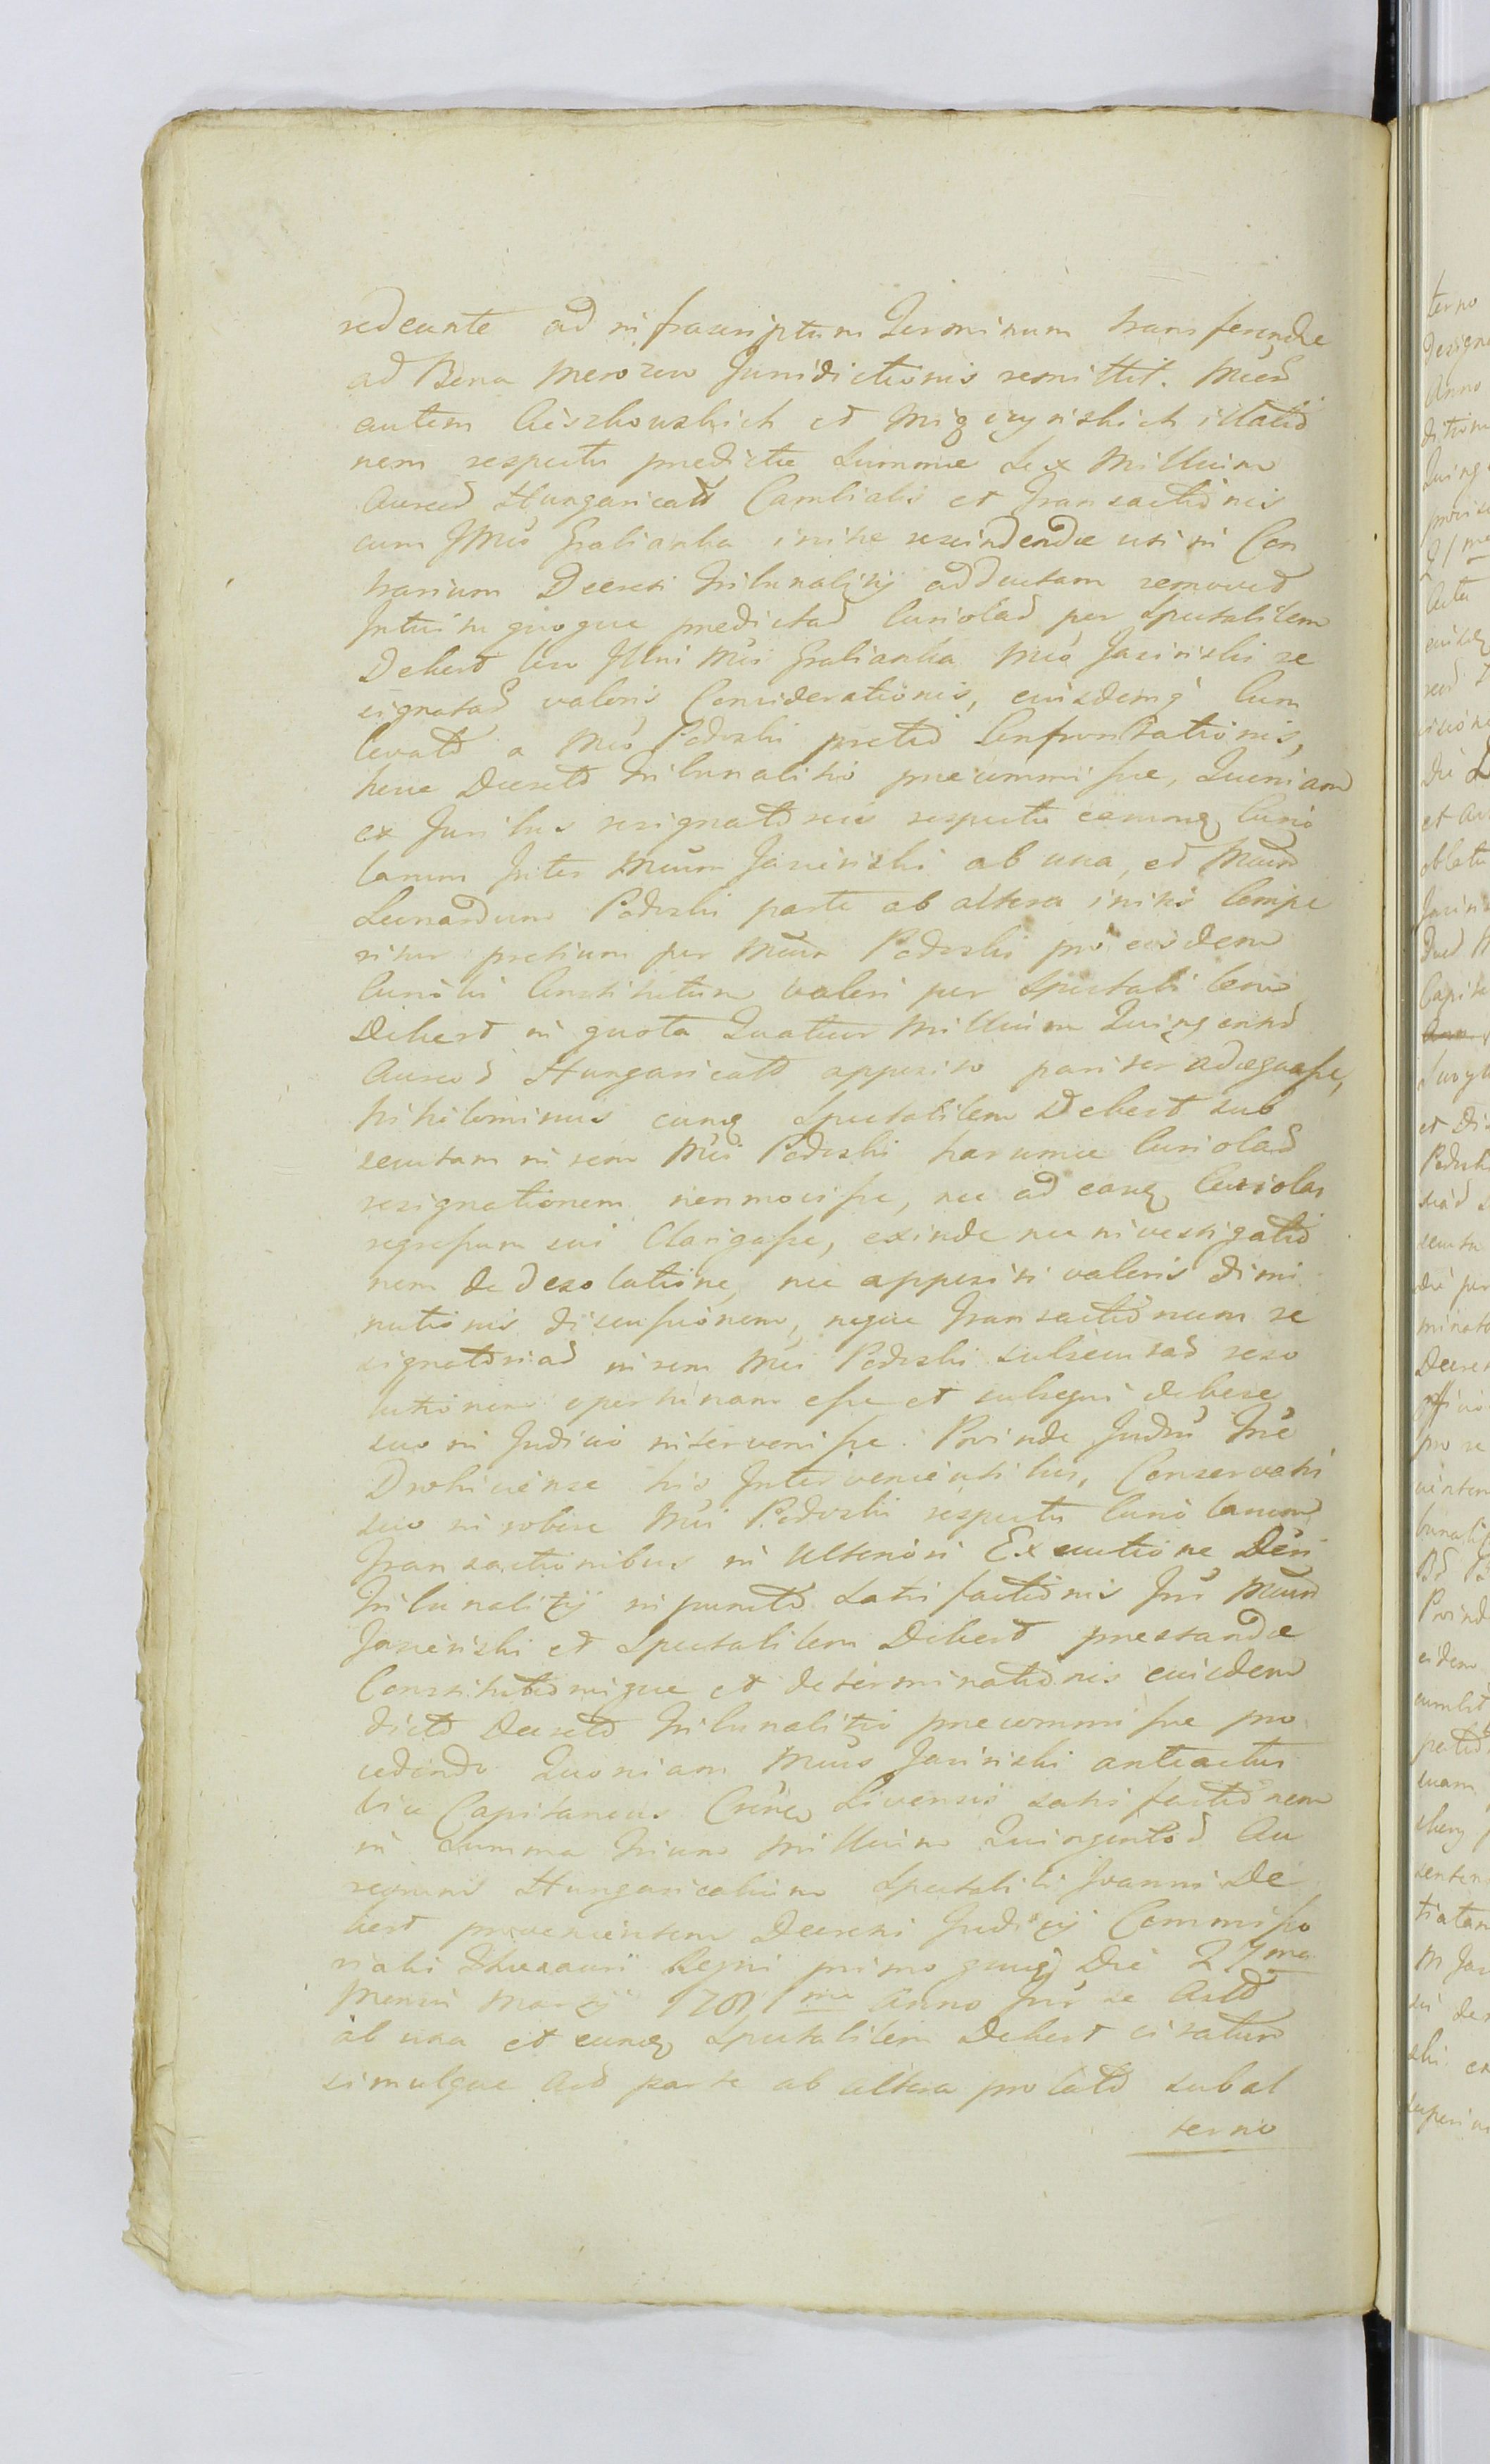 redeunte ad infrascriptum Terminum transferendae
ad Bona Merozew Jurisdictionis remittit. Mcoŕ
autem Cieszkowskich et Mięczyńskich illatio
nem respectu predictae Summae Sex Millium
Aureoŕ Hungaricalt Cambialis et Transactionis
cum Jllmo Grabianka initae rescindendae uti in Con
trarium Decreti Tribunalitij adductam removet
Intuitu quoque predictaŕ Curiolaŕ per Spectabilem
Debert seu Jllmi Mci Grabianka Mco Jasinski re
signataŕ valoris Considerationis, eiusdemq́ cum
levato a Mco Podoski pretio Confrontationis,
hene Decreto Tribunalitio praecommissae, Quoniam
ex Juribus resignatoriis respectu earumq Curio
larum Inter Mcum Jasinski ab una, et Mcum
Leonardum Podoski parte ab altera initis Compe
ritur pretium per Mcum Podoski pro eisdem
Curiolis Constitutum valori per Spectabilem
Debert in quota Quatuor Millium Quingentoŕ
Aureoŕ Hungaricalt apposito pariter adaequasse,
nihilominus eumq Spectabilem Debert sub
secutam in rem Mci Podoski harumce Curiolaŕ
resignationem non movisse, nec ad easq Curiolas
regressum sui Clarigasse, exinde nec investigatio
nem de desolatione, nec appositi valoris dimi
nutionis discussionem, neque Transactionum re
signatoriaŕ in rem Mci Podoski subsecutaŕ reso
lutionem opertunam esse et subsequi debere
suo in Judicio intervenisse. Proinde Judm Tre
Drohicense his Intervenientibus, Conservatis
suo in robore Mci Podoski respectu Curiolarum
Transactionibus in Ulteriori Executione Dcti
Tribunalitij in puncto Satisfactionis Jnr Mcum
Jasinski et Spectabilem Debert praestandae
Constitutionique et determinationis eiusdem
dicto Decreto Tribunalitio praecommissae pro
cedendo Quoniam Mcus Jasinski anteactus
Vice Capitaneus Crensu Livensis satisfactionem
in Summa Trium Millium Quingentoŕ Au
reorum Hungaricalium Spectabili Joanni De
bert provenientem Decreti Judicij Commisso
rialis Thesauri Regni primo quoq́ Die 27ma
Mensis Martij 1781me Anno Jnr se Acto
ab una et eumq Spectabilem Debert citatum
simulque Act parte ab altera prolato subal
terno